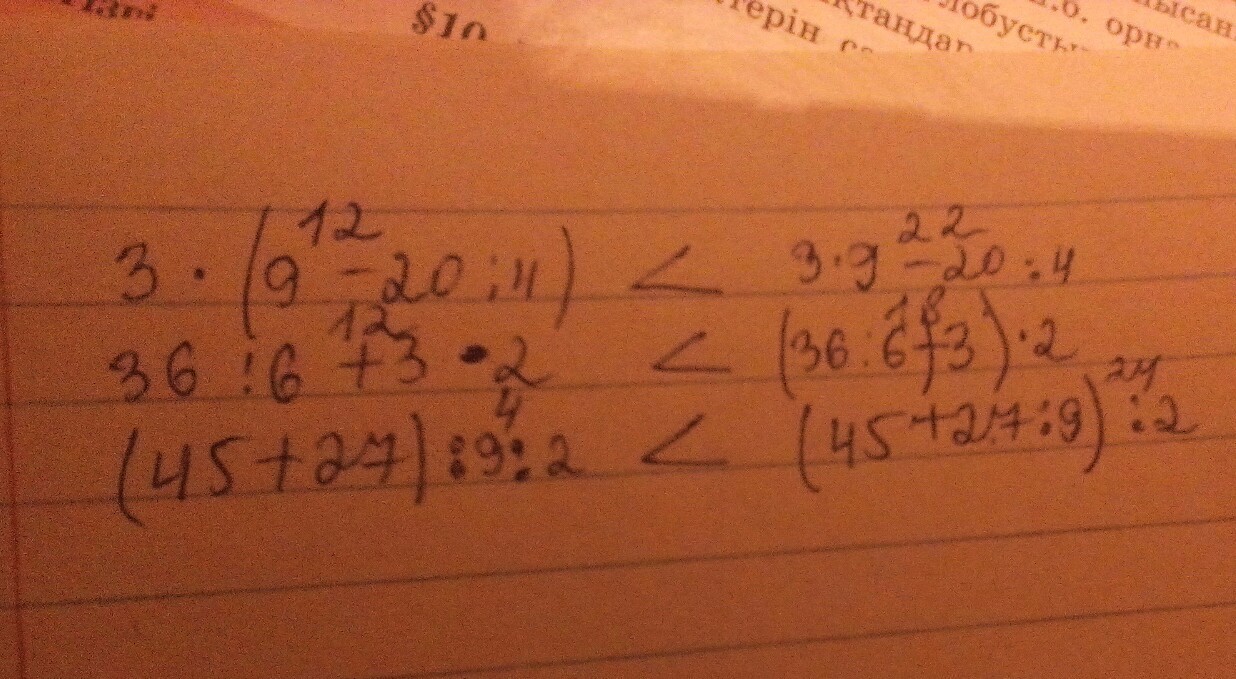 §10
терін
12 22
3 · (9 - 20 : 4) < 3 · 9 - 20 : 4
12 18
36 : 6 + 3 · 2 < (36 : 6 + 3) · 2
4 24
(45 + 27) : 9 : 2 < (45 + 27 : 9) : 2